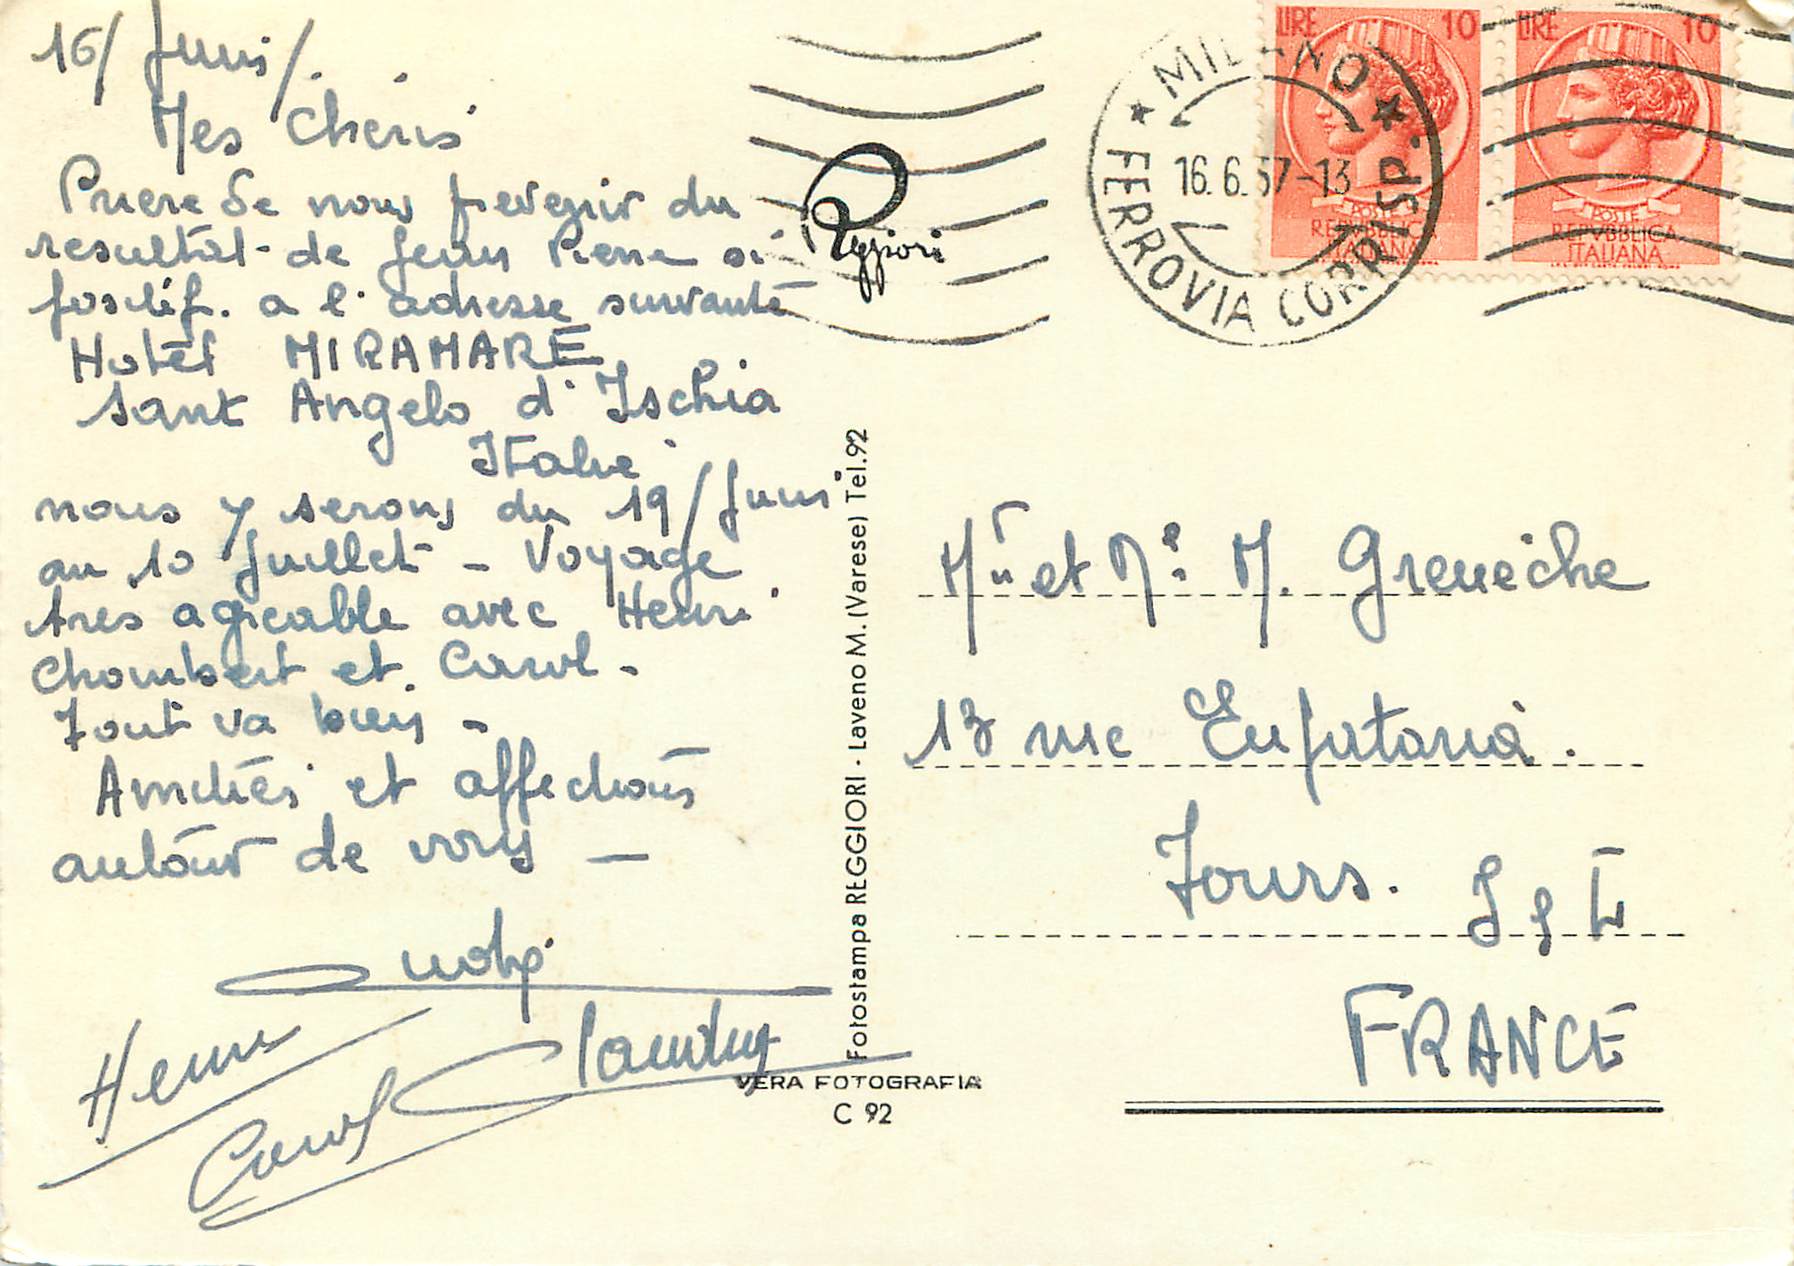 16/Juin/.
Mes Chéris
Priere de nous prevenir du
resultat de Jean Pierre si
positif. a l'adresse suivante
Hotel MIRAMARE
Sant Angelo d'Ischia
Italie
nous y serons du 19/Juin
au 10 Juillet - Voyage
tres agréable avec Henri
Chombert et Carol -
Tout va bien -
Amitiés et affections
autour de vous -
Henri
Carol
Reggiori
Fotostampa REGGIORI - Laveno M. (Varese) Tel. 92
VERA FOTOGRAFIA
C 92
LIRE 10
POSTE
REPVBBLICA
ITALIANA
LIRE 10
POSTE
REPVBBLICA
ITALIANA
MILANO
16.6.57-13
FERROVIA CORRISP.
Mr et Me M. Greneche
13 rue Eupatoria.
Tours. I & L
FRANCE